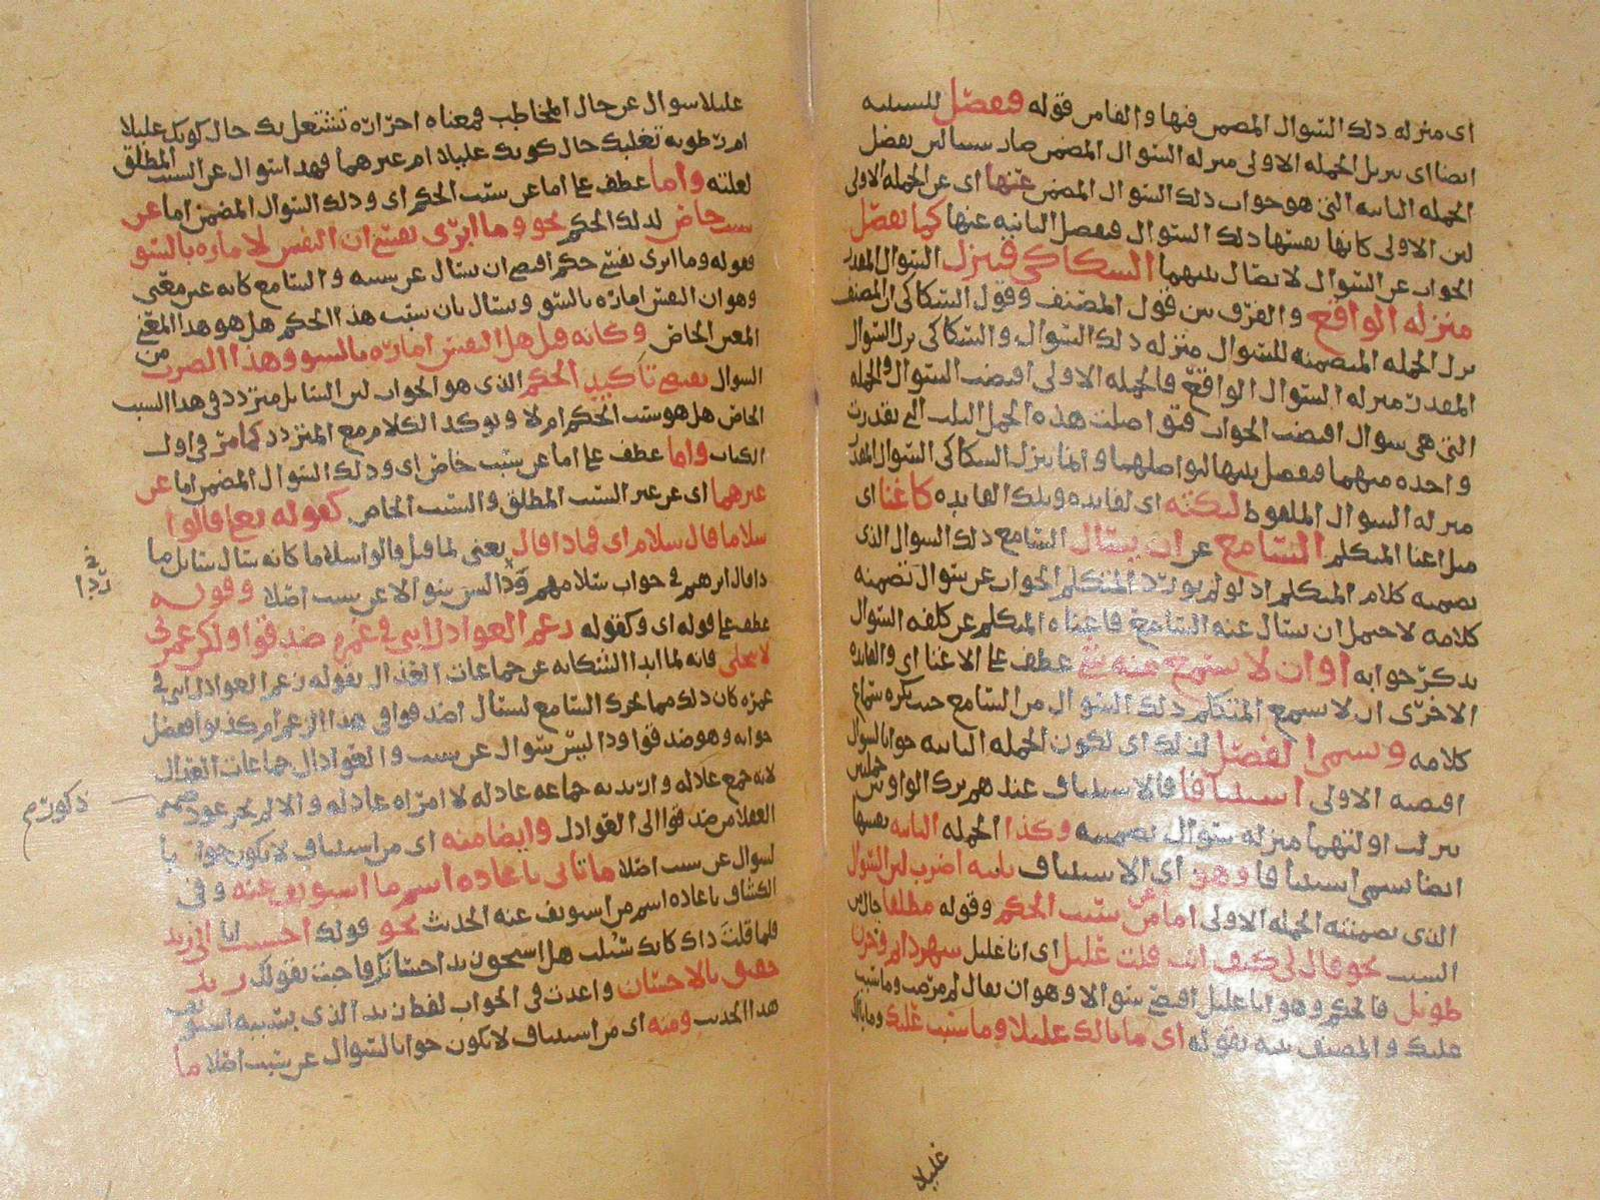 اى منزله ذلك السوال المضمن فيها والفا من قوله فيفصل للسببيه
ايضا اى تنزيل الجمله الاولى منزله السوال المضمن صار سببا لان يفصل
الجمله الثانيه التى هو جواب ذلك السوال المضمن عنها اى عن الجمله الاولى
لان الاولى كانها نفسها ذلك السوال فيفصل الثانيه عنها كما يفصل
الجواب عن السوال لاتصال بينهما السكاكي فينزل السوال المقدر
منزله الواقع والفرق بين قول المصنف وقول السكاكى ان المصنف
نزل الجمله المتضمنه للسوال منزله ذلك السوال والسكاكى نزل السوال
المقدر منزله السوال الواقع فالجمله الاولى اقتضت السوال والجمله
التى هى سوال اقتضت الجواب فتواصلت هذه الجمل الثلاث التى تقدرت
واحده منهما فيفصل بينها لتواصلهما وانما ينزل السكاكى السوال المقدر
منزله السوال الملفوظ لنكته اى لفايده وتلك الفايده كاغنا اى
مثل اغنا المتكلم السامع عن ان يسال السامع ذلك السوال الذى
تضمنه كلام المتكلم اذ لو لم يورد المتكلم الجواب عن سوال تضمنه
كلامه لاحتمل ان يسال عنه السامع فاغناه المتكلم عن كلفه السوال
بذكر جوابه او ان لا يسمع منه شي عطف على الاغنا اى والفايده
الاخرى ان لا يسمع المتكلم ذلك السوال من السامع حيث يكره سماع
كلامه ويسمى الفصل لذلك اى لكون الجمله الثانيه جوابا لسوال
اقتضته الاولى استينافا فالاستيناف عندهم ترك الواو بين جملتين
نزلت اولتهما منزله سوال تضمنته وكذا الجمله الثانيه نفسها
ايضا تسمى استينافا وهو اى الاستيناف ثلثه اضرب لان السوال
الذى تضمنته الجمله الاولى اما عن سبب الحكم وقوله مطلقا حال من
السبب نحو قال لى كيف انت قلت عليل اى انا عليل سهر دايم وحزن
طويل فالحكم وهو انا عليل اقتضى سوالا وهو ان يقال لم مرضت وما سبب
علتك والمصنف نبه بقوله اى ما بالك عليلا وما سبب علتك وما بالك
عليلا
عليلا سوال عن حال المخاطب فمعناه احراره تشتعل بك حال كونك عليلا
ام رطوبه تغلبك حال كونك عليلا ام غيرهما فهذا سوال عن السبب المطلق
لعلته واما عطف على اما عن سبب الحكم اى وذلك السوال المضمن اما عن
سبب خاص لذلك الحكم نحو وما ابرى نفسي ان النفس لاماره بالسو
فقوله وما ابرى نفسى حكم اقتضى ان يسال عن سببه والسامع كانه عين معنى
وهو ان النفس اماره بالسو ويسال بان سبب هذا الحكم هل هو هذا المعنى
المعين الخاص وكانه قيل هل النفس اماره بالسو وهذا الضرب من
السوال يقتضى تاكيد الحكم الذى هو الجواب لان السايل متردد فى هذا السبب
الخاص هل هو سبب الحكم ام لا ويوكد الكلام مع المتردد كما مر فى اول
الكتاب واما عطف على اما عن سبب خاص اى وذلك السوال المضمن اما عن
غيرهما اى عن غير السبب المطلق والسبب الخاص كقوله تعالى قالوا
سلاما قال سلام اى فماذا قال يعنى لما قيل قالوا سلاما كانه سال سايل ما
ذا قال ابرهيم فى جواب سلامهم وذا ليس سوالا عن سبب اصلا وقوله
في ردا
عطف على قوله اى وكقوله زعم العواذل اننى فى غمره صدقوا ولكن غمرتى
لا تنجلى فانه لما ابدا الشكايه عن جماعات العذال بقوله زعم العواذل اننى فى
غمره كان ذلك مما يحرك السامع ليسال اصدقوا فى هذا الزعم ام كذبوا ففصل
جوابه وهو صدقوا وذا ليس سوال عن سبب والعواذل جماعات العذال
لانه جمع عاذله واريد به جماعه عاذله لا امراه عاذله والا لم يجز عود ضمير
ذكور م
العقلا من صدقوا الى العواذل وايضا منه اى من استيناف لا يكون جوابا
لسوال عن سبب اصلا ما ياتى باعاده اسم ما استونف عنه وفى
الكشاف باعاده اسم من استونف عنه الحديث نحو قولك احسنت انا الى زيد
فلما قلت ذاك كانك سئلت هل استحق زيد احسانك فاجبت بقولك زيد
حقيق بالاحسان واعدت فى الجواب لفظ زيد الذى
هذا الحديث ومنه اى من استيناف لا يكون جوابا لسوال عن سبب اصلا ما